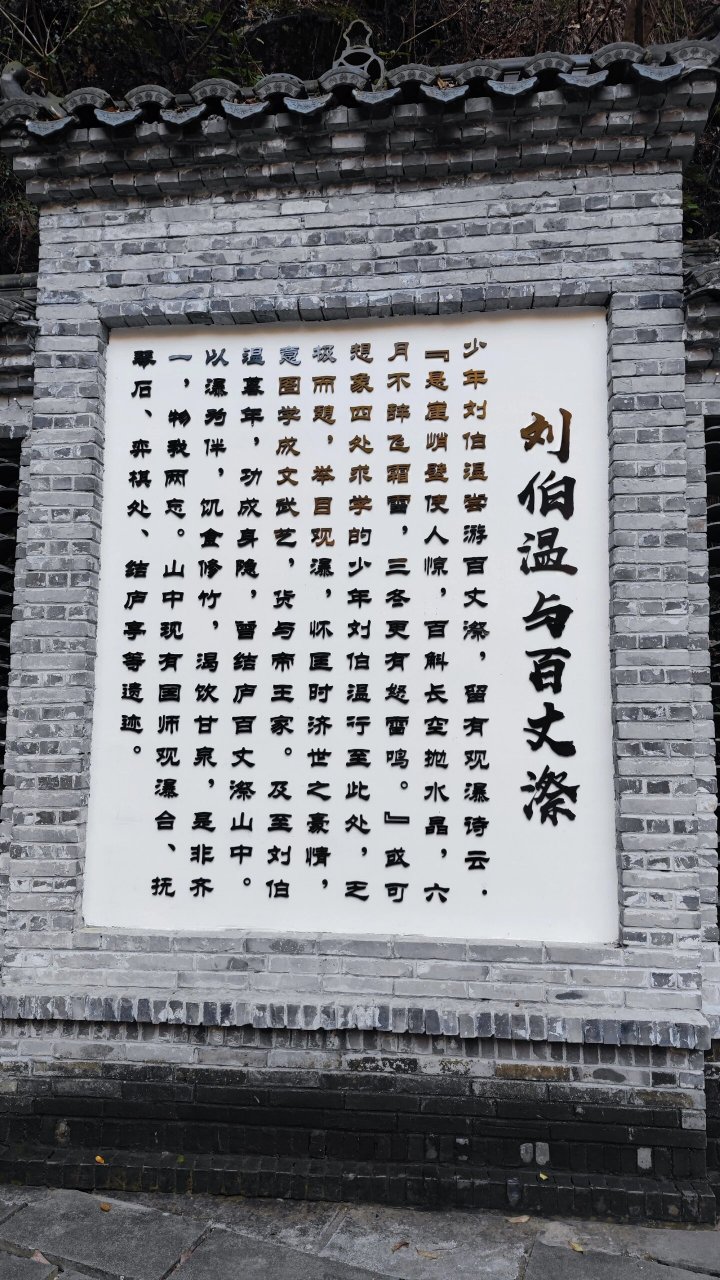 刘伯温与百丈漈
少年刘伯温尝游百丈漈，留有观瀑诗云．
『悬崖峭壁使人惊，百斛长空抛水晶，六
月不辞飞霜雪，三冬更有怒雷鸣。』或可
想象四处求学的少年刘伯温行至此处，乏
极而憩，举目观瀑，怀匡时济世之豪情，
意图学成文武艺，货与帝王家。及至刘伯
温暮年，功成身隐，曾结庐百丈漈山中。
以瀑为伴，饥食修竹，渴饮甘泉，是非齐
一，物我两忘。山中现有国师观瀑台、抚
琴石、弈棋处、结庐亭等遗迹。